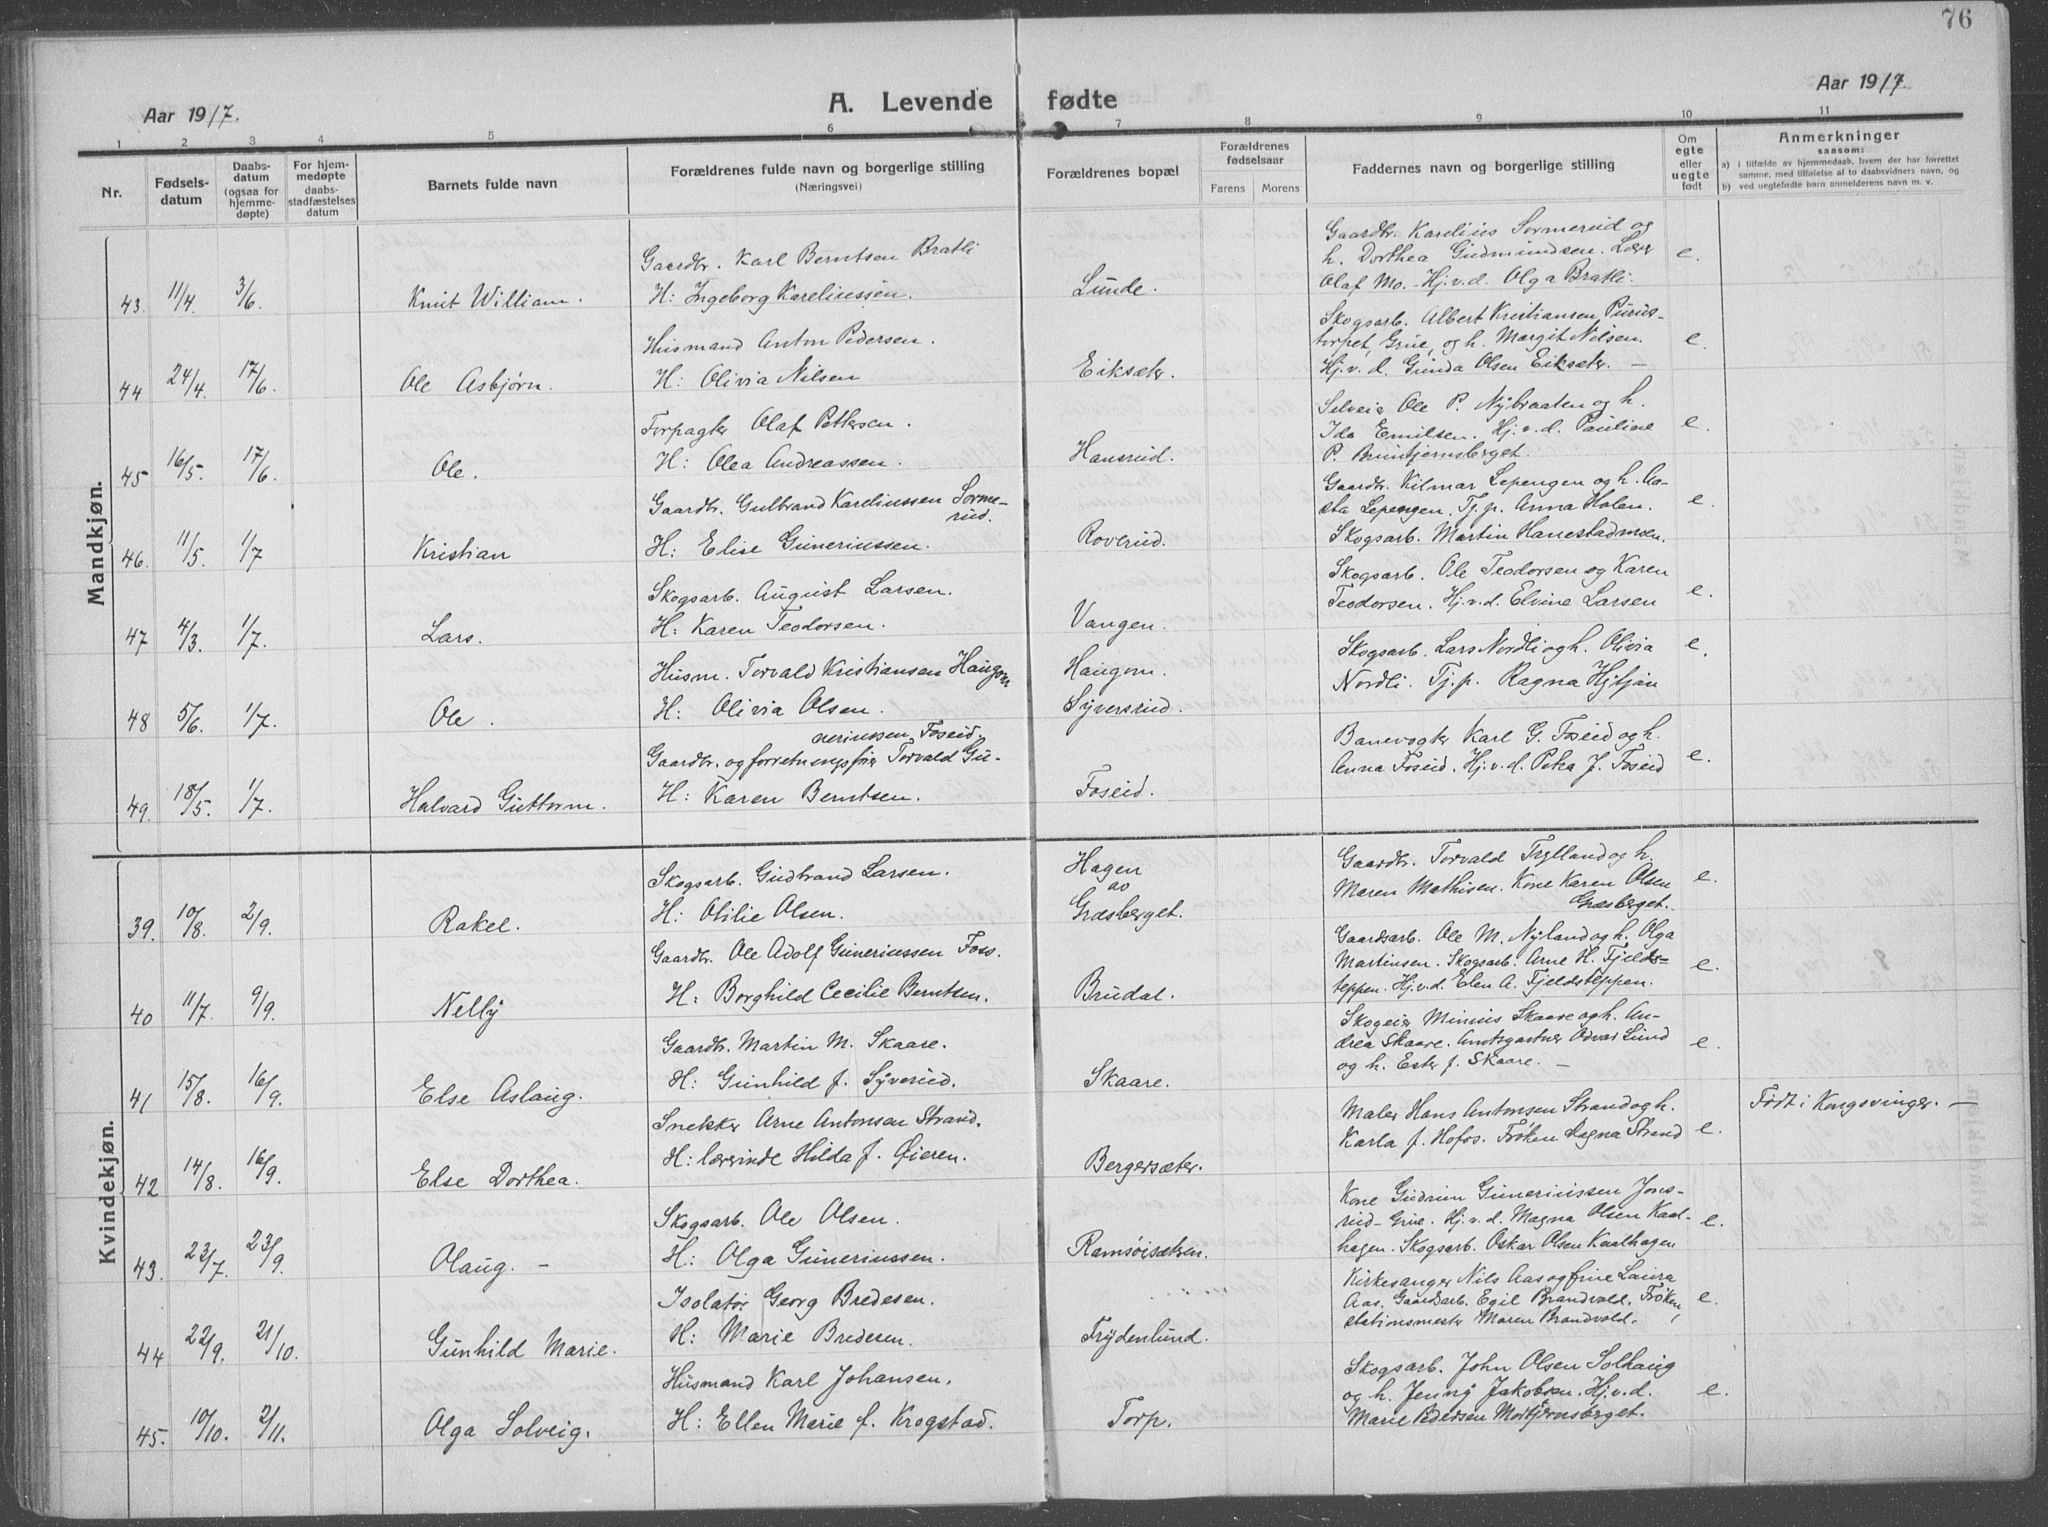 76
Aar 1917.
A. Levende fødte
Aar 1917.
1 2 3 4 5 6 7 8 9 10 11
Nr.
Fødsels-
datum
Daabs-
datum
(ogsaa for
hjemme-
døpte)
For hjem-
medøpte
daabs-
stadfæstelses
datum
Barnets fulde navn
Forældrenes fulde navn og borgerlige stilling
(Næringsvei)
Forældrenes bopæl
Forældrenes
fødselsaar
Farens Morens
Faddernes navn og borgerlige stilling
Om
egte
eller
uegte
født
Anmerkninger
saasom:
a) i tilfælde av hjemmedaab, hvem der har forrettet
samme, med tilføielse af to daabsvidners navn, og
b) ved uegtefødte barn anmelderens navn m. v.
Mandkjøn.
43 11/4. 3/6. Knut William.
Gaardbr. Karl Berntsen Bratli
H: Ingeborg Kareliussen.
Lunde.
Gaardbr. Karelius Sormerud og
h. Dorthea Gudmundsen. Lærer
Olaf Mo. Hj.v.d. Olga Bratli.
e.
44 24/4. 17/6. Ole Asbjørn.
Husmand Anton Pedersen.
H: Olivia Nilsen
Eiksæter.
Skogsarb. Albert Kristiansen Purus-
torpet, Grue, og h. Margit Nilsen.
Hj.v.d. Gunda Olsen Eiksæter. —
e.
45 16/5. 17/6. Ole.
Forpagter Olaf Pettersen.
H: Olea Andreassen.
Hansrud.
Selveier Ole P. Nybraaten og h.
Ida Emilsen. Hj.v.d. Pauline
P. Bruntjernsberget.
e.
46. 11/5. 1/7 Kristian
Gaardbr. Gulbrand Kareliussen Sorme-
rud.
H: Elise Guneriussen.
Roverud.
Gaardbr. Kilmar Lepengen og h. Aa-
sta Lepengen. Tj.p. Anna Holen.
Skogsarb. Martin Hanestadmoen.
e.
47 4/3. 1/7. Lars.
Skogsarb. August Larsen.
H: Karen Teodorsen.
Vangen.
Skogsarb. Ole Teodorsen og Karen
Teodorsen. Hj.v.d. Elvine Larsen
e.
48 5/6. 1/7. Ole.
Husm. Torvald Kristiansen Haugom
H: Olivia Olsen.
Haugom.
Syversrud.
Skogsarb. Lars Nordli og h. Olivia
Nordli. Tj.p. Ragna Hytjan
e.
49. 18/5. 1/7. Halvard Guttorm.
neriussen Foseid.
Gaardbr. og forretningsfører Torvald Gu-
H: Karen Berntsen.
Foseid.
Banevogter Karl G. Foseid og h.
Anna Foseid. Hj.v.d. Petra J. Foseid
e.
Kvindekjøn.
39. 10/8. 2/9. Rakel.
Skogsarb. Gudbrand Larsen.
H: Otilie Olsen.
Hagen
av
Græsberget.
Gaardbr. Torvald Trylland og h.
Maren Mathisen. Kone Karen Olsen
Græsberget.
e.
40 11/7. 9/9. Nelly
Gaardbr. Ole Adolf Guneriussen Foss.
H: Borghild Cecilie Berntsen.
Brudal.
Gaardsarb. Ole M. Nyland og h. Olga
Martinsen. Skogsarb. Arne H. Fjelds-
teppen. Hj.v.d. Elen A. Fjeldsteppen.
e.
41 15/8. 16/9. Else Aslaug.
Gaardbr. Martin M. Skaare.
H: Gunhild f. Syverud.
Skaare.
Skogeier Minius Skaare og h. An-
drea Skaare. Amtsgartner Odvar Lund
og h. Ester f. Skaare. —
e.
42 14/8. 16/9. Else Dorthea.
Snekker Arne Antonsen Strand.
H: lærerinde Hilda f. Øieren.
Bergersæter.
Maler Hans Antonsen Strand og h.
Karla f. Hofos. Frøken Dagna Strand
e.
Født i Kongsvinger. —
43. 23/7. 23/9. Olaug. —
Skogsarb. Ole Olsen.
H: Olga Guneriussen.
Ramsøisætren.
Kone Gudrun Guneriussen Jons-
rud - Grue. Hj.v.d. Magna Olsen Kaal-
hagen. Skogsarb. Oskar Olsen Kaalhagen
e.
44 22/9. 21/10. Gunhild Marie.
Isolatør Georg Bredesen.
H: Marie Bredesen.
Frydenlund.
Kirkesanger Nils Aas og frue Laura
Aas. Gaardsarb. Egil Brandvold. Frøken,
stationsmester Maren Brandvold.
e.
45. 10/10. 2/11. Olga Solveig.
Husmand Karl Johansen.
H: Ellen Marie f. Krogstad.
Torp.
Skogsarb. John Olsen Solhaug
og h. Jenny Jakobsen. Hj.v.d.
Marie Pedersen Mortjernsberget.
e.